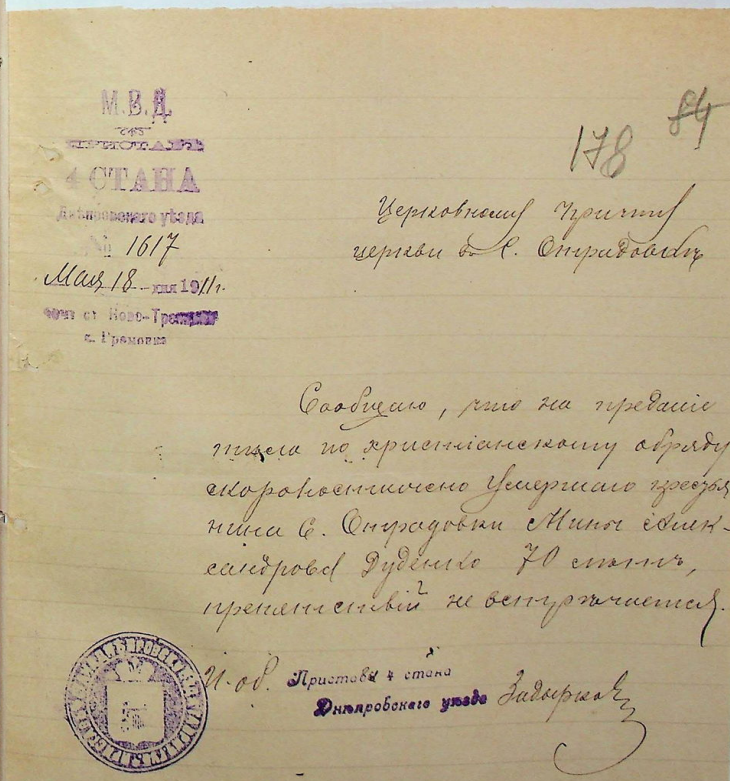 М.В.Д.
ПРИСТАВЪ
4 СТАНА
Днѣпровскаго уѣзда
№ 1617
Мая 18 дня 1911г.
почт ст Ново-Троицкое
с. Громовка
178
84
Церковному Причту
церкви в с. Отрадовкѣ
Сообщаю, что на преданіе
тѣла по христіанскому обряду
скоропостижно умершаго крестья
нина с. Отрадовки Мины Алек-
сандрова Дуденко 70 лѣтъ,
препятствій не встрѣчается.
И. об. Пристава 4 стана
Днѣпровского уѣзда